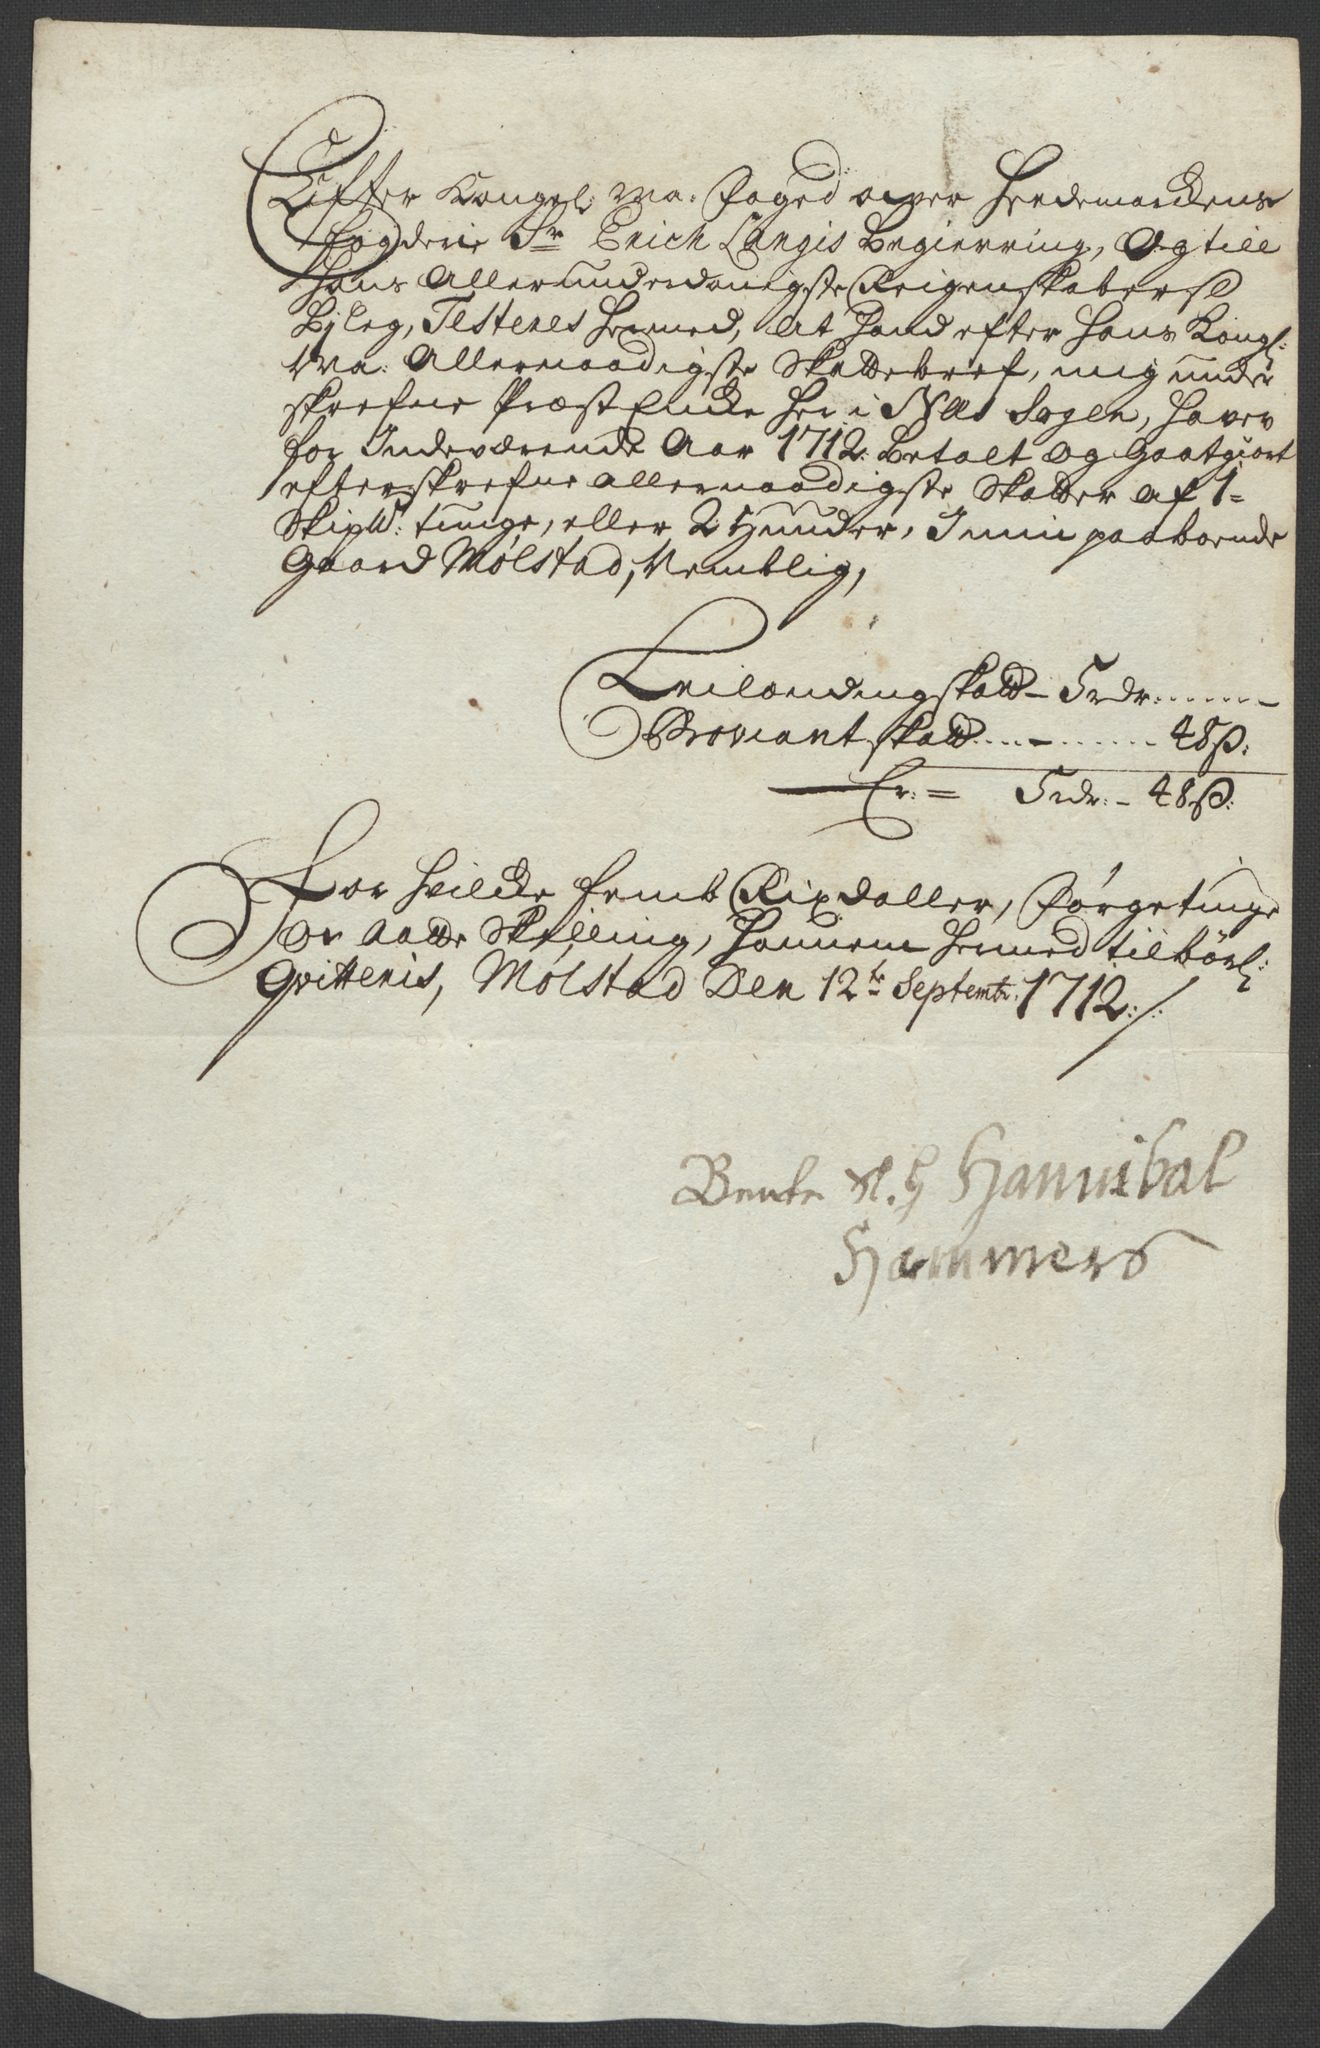 Efter Kongel: Ma: Foged over Hedemarckens
Fogderie Sr Erich Langis begierring, Og till
Hans Allerunderdanigste Reigenskabers
bjleg, Testeres hermed, At Hand efter Hans Kongl:
Ma: Allernaadigste Skattebref, mig under
skrefne Præst Encke her i Næs Sogen, haver
for Indeværende Aar 1712: betalt Og Gaatgiort
efterskrefne allernaadigste Skatter af 1=
Skipd: tunge, eller 2 Hunder, I min paaboende
Gaard Mølstad, Nemblig,
Leilændingskatt - 5 rdr: ......-
Proviant skatt....-....... 48 ß:
Er: = 5 rdr: - 48 ß:
For hvilcke femb Rixdaller, Førgetinge
Ov Aatte Skelling, Hannem hermed tilbörl:
Qvitteris, Mølstad Den 12te Septembr: 1712:/:
Bente Sl. H Hannibal
Hammers